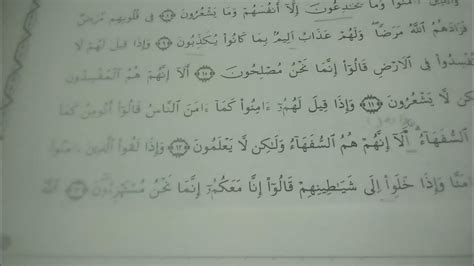 ءامنوا وما يخدعون إلا أنفسهم وما يشعرون ٩ في قلوبهم مرض
فزادهم الله مرضا ولهم عذاب أليم بما كانوا يكذبون ١٠ وإذا قيل لهم لا
تفسدوا في الأرض قالوا إنما نحن مصلحون ١١ ألا إنهم هم المفسدون
ولكن لا يشعرون ١٢ وإذا قيل لهم ءامنوا كما ءامن الناس قالوا أنؤمن كما
السفهاء ألا إنهم هم السفهاء ولكن لا يعلمون ١٣ وإذا لقوا الذين ءامنوا
ءامنا وإذا خلوا إلى شياطينهم قالوا إنا معكم إنما نحن مستهزءون الله